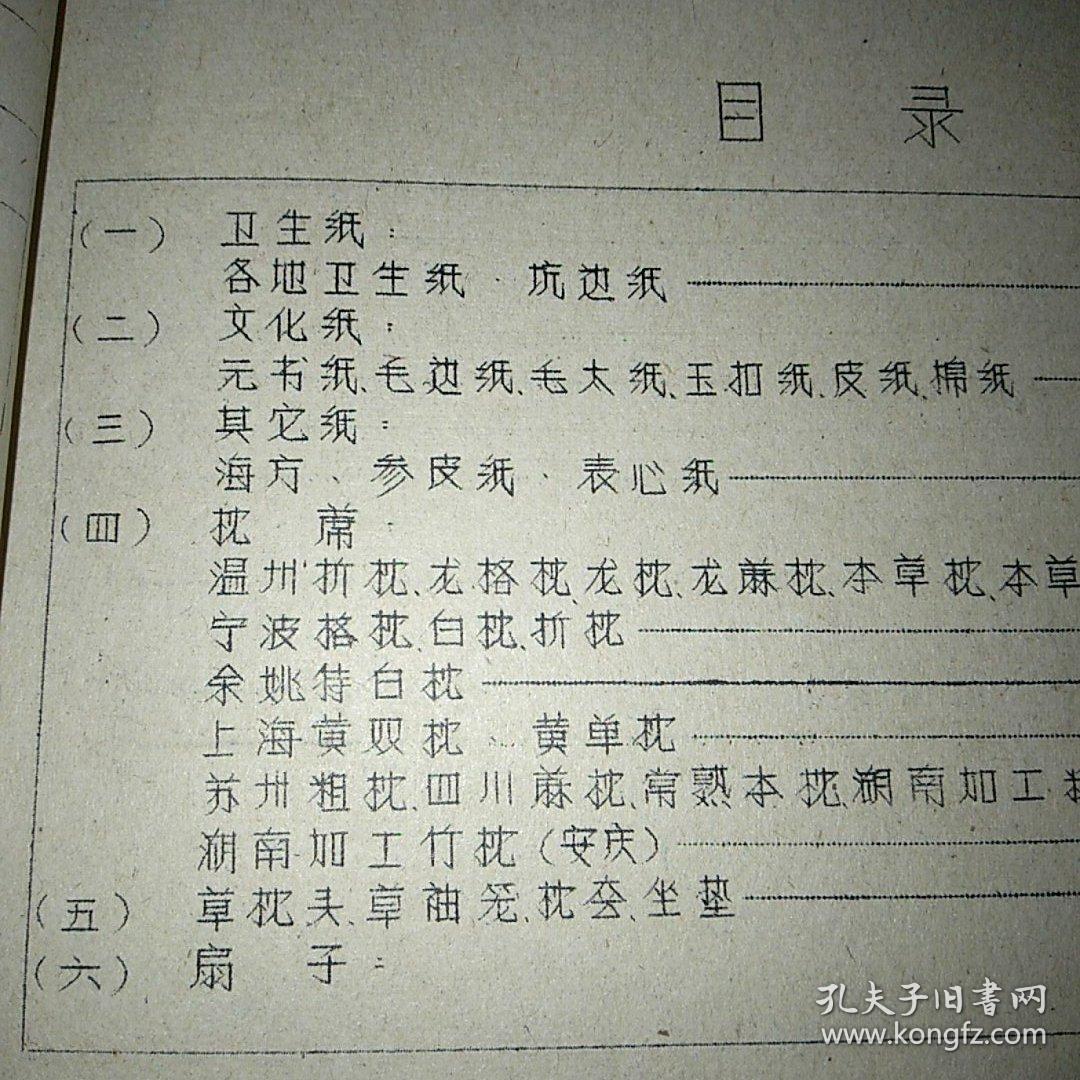 目 录
(一) 卫生纸：
各地卫生纸、坑边纸
(二) 文化纸：
元书纸、毛边纸、毛太纸、玉扣纸、皮纸、棉纸
(三) 其它纸：
海方、参皮纸、表心纸
(四) 枕 蓆：
温州折枕、龙格枕、龙枕、龙蔴枕、本草枕、本草
宁波格枕、白枕、折枕
余姚特白枕
上海黄双枕、黄单枕
苏州粗枕、四川蔴枕、常熟本枕、湖南加工
湖南加工竹枕(安庆)
(五) 草枕头、草袖笼、枕套、坐垫
(六) 扇 子：
孔夫子旧書网
www.kongfz.com